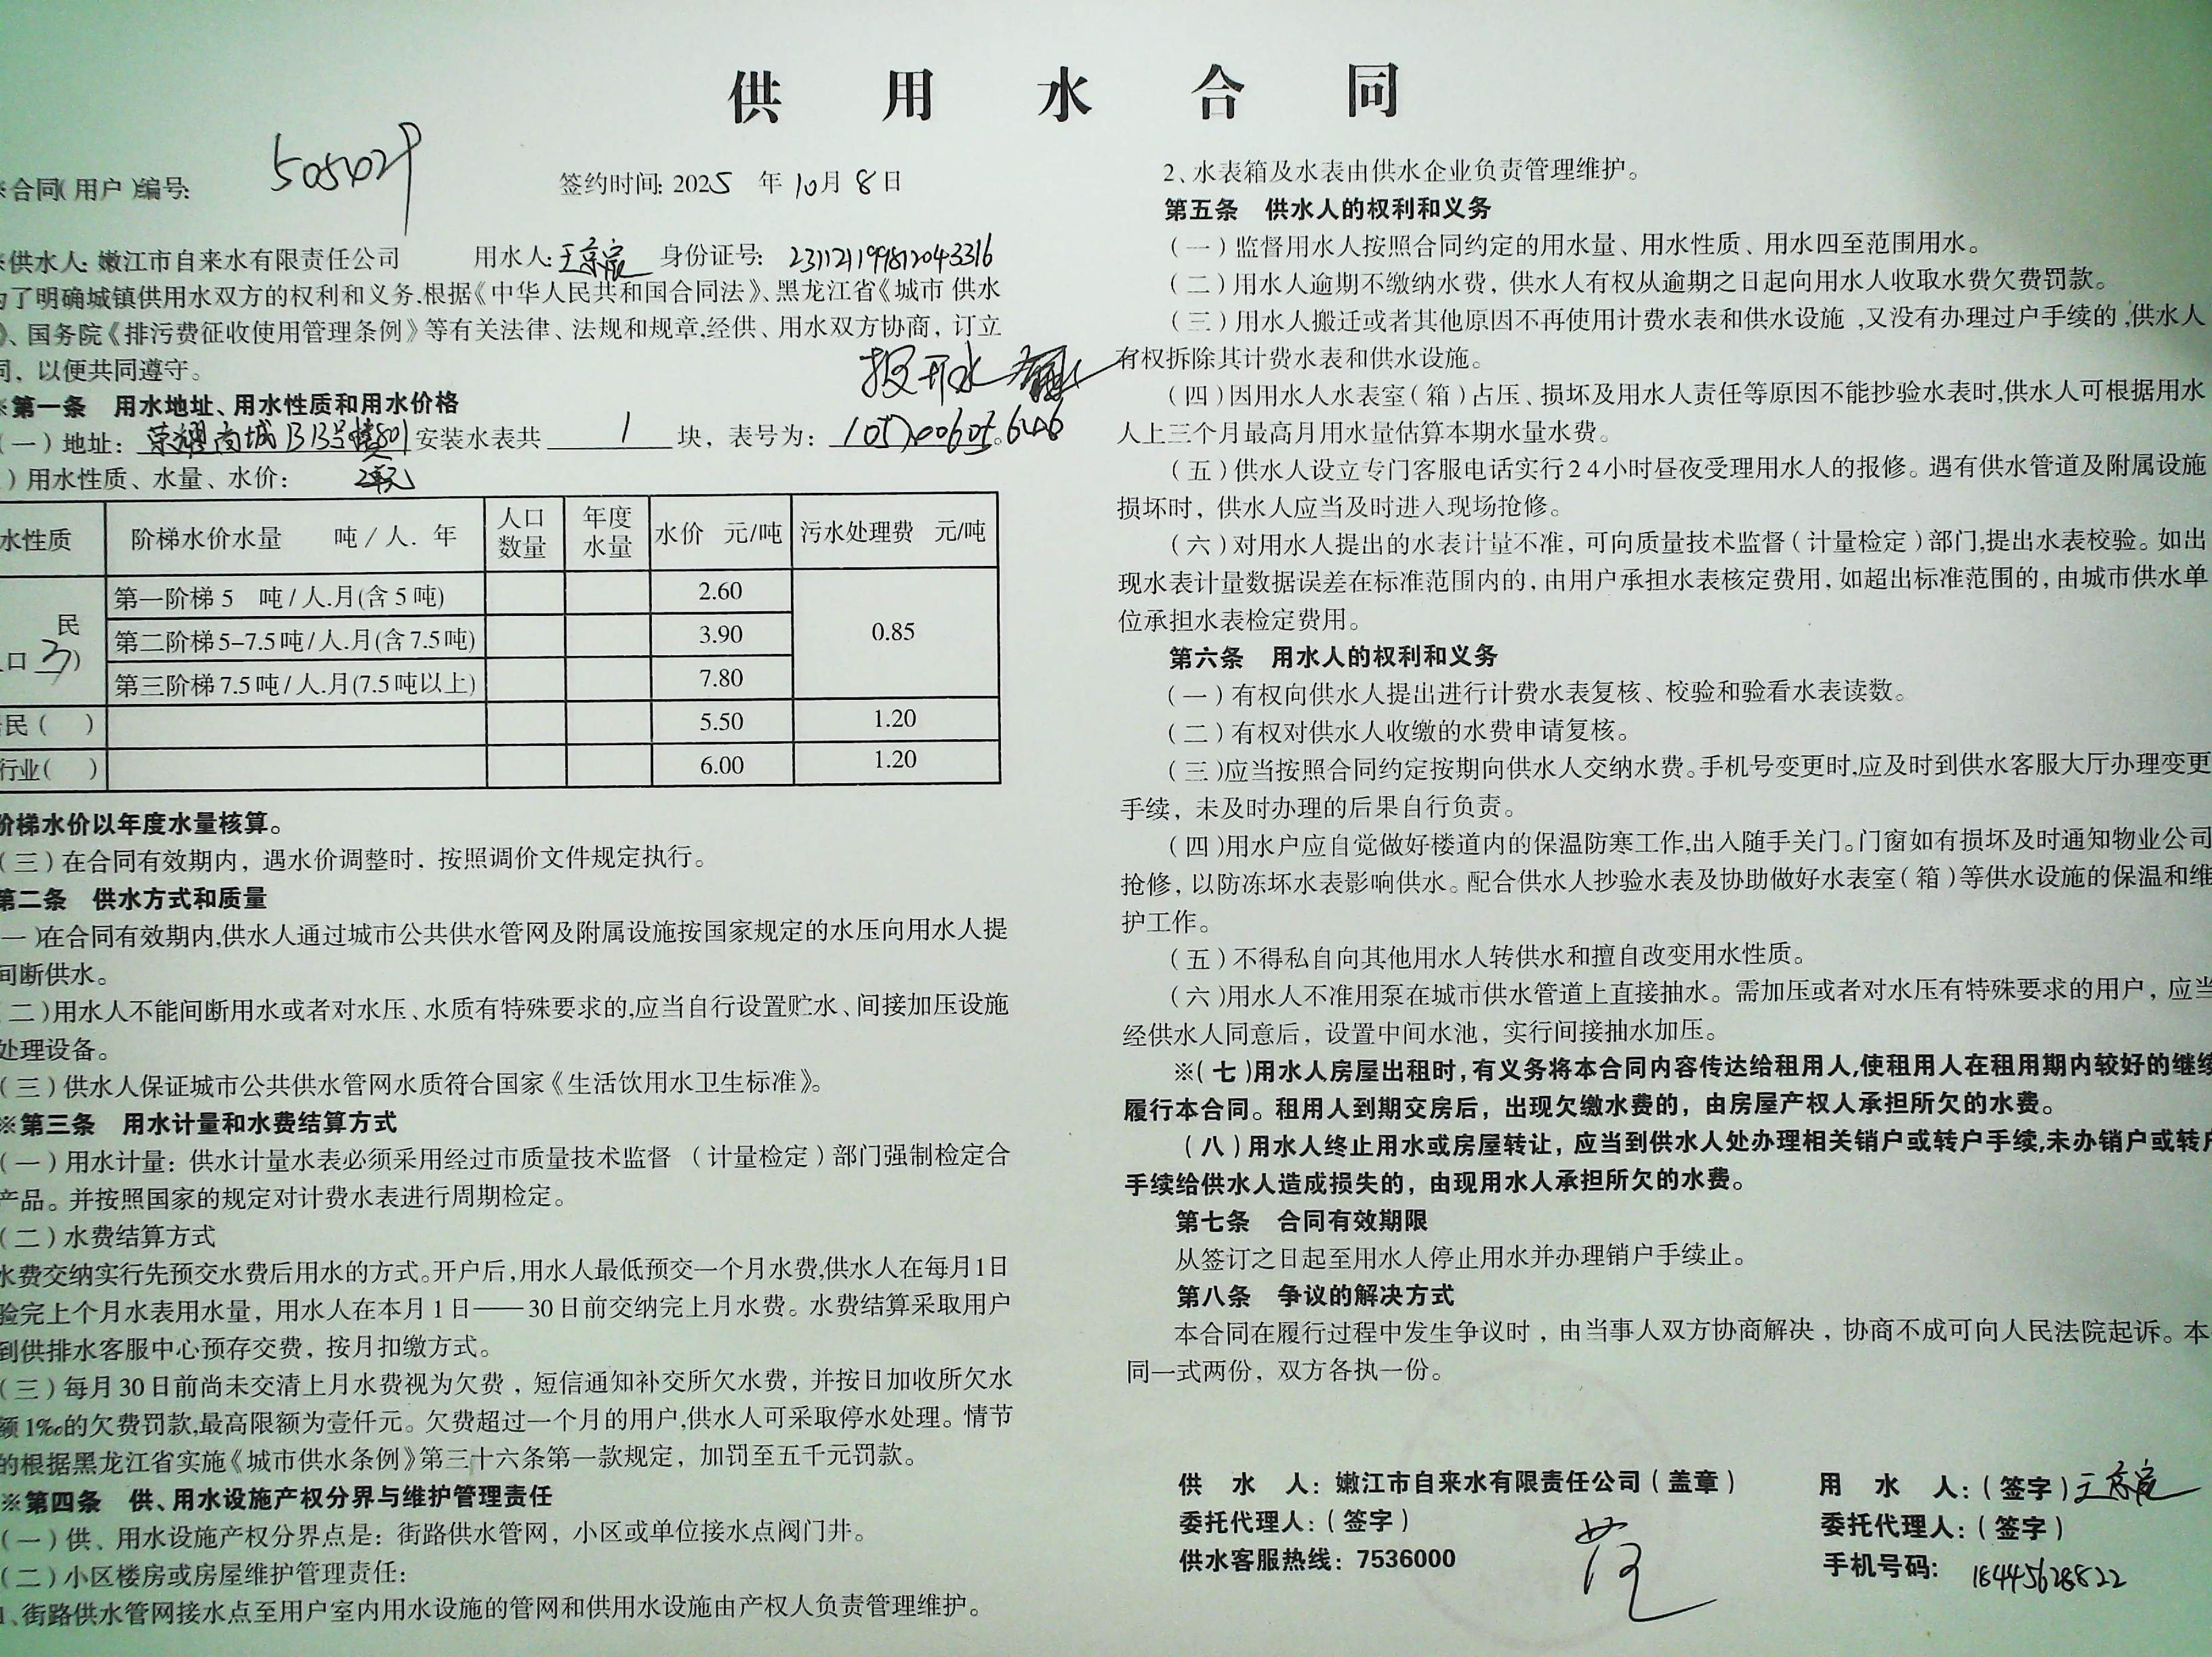 供用水合同
※合同(用户)编号: 505029
签约时间: 2025 年 10月 8日
※供水人: 嫩江市自来水有限责任公司 用水人: 王京宸 身份证号: 231121199812043316
为了明确城镇供用水双方的权利和义务.根据《中华人民共和国合同法》、黑龙江省《城市 供水
》、国务院《排污费征收使用管理条例》等有关法律、法规和规章,经供、用水双方协商，订立
同，以便共同遵守。
报开水
※第一条 用水地址、用水性质和用水价格
(一)地址: 荣耀商城B13号楼801 安装水表共 1 块，表号为:
2单元
)用水性质、水量、水价:
水性质 阶梯水价水量 吨/人. 年 人口数量 年度水量 水价 元/吨 污水处理费 元/吨
民
口 3)
第一阶梯 5 吨/人.月(含 5 吨) 2.60 0.85
第二阶梯 5-7.5吨/人.月(含 7.5吨) 3.90
第三阶梯 7.5吨/人.月(7.5吨以上) 7.80
民( ) 5.50 1.20
行业( ) 6.00 1.20
阶梯水价以年度水量核算。
(三)在合同有效期内，遇水价调整时，按照调价文件规定执行。
第二条 供水方式和质量
一)在合同有效期内,供水人通过城市公共供水管网及附属设施按国家规定的水压向用水人提
间断供水。
二)用水人不能间断用水或者对水压、水质有特殊要求的,应当自行设置贮水、间接加压设施
处理设备。
(三)供水人保证城市公共供水管网水质符合国家《生活饮用水卫生标准》。
※第三条 用水计量和水费结算方式
(一)用水计量：供水计量水表必须采用经过市质量技术监督 (计量检定)部门强制检定合
产品。并按照国家的规定对计费水表进行周期检定。
(二)水费结算方式
水费交纳实行先预交水费后用水的方式。开户后,用水人最低预交一个月水费,供水人在每月1日
验完上个月水表用水量，用水人在本月1日——30日前交纳完上月水费。水费结算采取用户
到供排水客服中心预存交费，按月扣缴方式。
(三)每月30日前尚未交清上月水费视为欠费，短信通知补交所欠水费，并按日加收所欠水
额1‰的欠费罚款,最高限额为壹仟元。欠费超过一个月的用户,供水人可采取停水处理。情节
的根据黑龙江省实施《城市供水条例》第三十六条第一款规定，加罚至五千元罚款。
※第四条 供、用水设施产权分界与维护管理责任
(一)供、用水设施产权分界点是：街路供水管网，小区或单位接水点阀门井。
(二)小区楼房或房屋维护管理责任：
1、街路供水管网接水点至用户室内用水设施的管网和供用水设施由产权人负责管理维护。
2、水表箱及水表由供水企业负责管理维护。
第五条 供水人的权利和义务
(一)监督用水人按照合同约定的用水量、用水性质、用水四至范围用水。
(二)用水人逾期不缴纳水费，供水人有权从逾期之日起向用水人收取水费欠费罚款。
(三)用水人搬迁或者其他原因不再使用计费水表和供水设施,又没有办理过户手续的,供水人
有权拆除其计费水表和供水设施。
(四)因用水人水表室(箱)占压、损坏及用水人责任等原因不能抄验水表时,供水人可根据用水
人上三个月最高月用水量估算本期水量水费。
(五)供水人设立专门客服电话实行24小时昼夜受理用水人的报修。遇有供水管道及附属设施
损坏时，供水人应当及时进入现场抢修。
(六)对用水人提出的水表计量不准，可向质量技术监督(计量检定)部门,提出水表校验。如出
现水表计量数据误差在标准范围内的，由用户承担水表核定费用，如超出标准范围的，由城市供水单
位承担水表检定费用。
第六条 用水人的权利和义务
(一)有权向供水人提出进行计费水表复核、校验和验看水表读数。
(二)有权对供水人收缴的水费申请复核。
(三)应当按照合同约定按期向供水人交纳水费。手机号变更时,应及时到供水客服大厅办理变更
手续，未及时办理的后果自行负责。
(四)用水户应自觉做好楼道内的保温防寒工作,出入随手关门。门窗如有损坏及时通知物业公司
抢修，以防冻坏水表影响供水。配合供水人抄验水表及协助做好水表室(箱)等供水设施的保温和维
护工作。
(五)不得私自向其他用水人转供水和擅自改变用水性质。
(六)用水人不准用泵在城市供水管道上直接抽水。需加压或者对水压有特殊要求的用户，应当
经供水人同意后，设置中间水池，实行间接抽水加压。
※(七)用水人房屋出租时,有义务将本合同内容传达给租用人,使租用人在租用期内较好的继续
履行本合同。租用人到期交房后，出现欠缴水费的，由房屋产权人承担所欠的水费。
(八)用水人终止用水或房屋转让，应当到供水人处办理相关销户或转户手续,未办销户或转户
手续给供水人造成损失的，由现用水人承担所欠的水费。
第七条 合同有效期限
从签订之日起至用水人停止用水并办理销户手续止。
第八条 争议的解决方式
本合同在履行过程中发生争议时，由当事人双方协商解决，协商不成可向人民法院起诉。本
同一式两份，双方各执一份。
供 水 人：嫩江市自来水有限责任公司(盖章) 用 水 人：(签字)王京宸
委托代理人：(签字) 委托代理人：(签字)
供水客服热线：7536000 手机号码: 18445628822